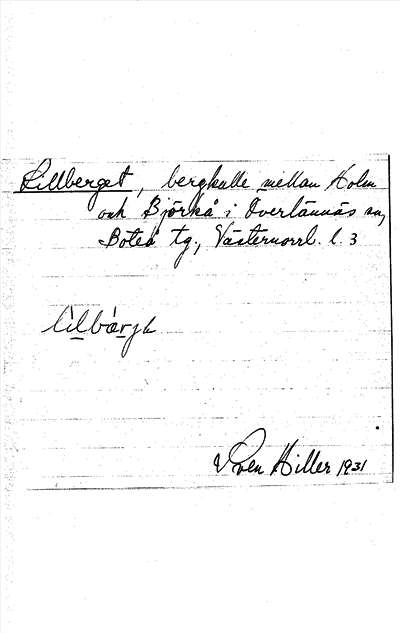 Lillberget, bergkulle mellan Holm
och Björkå i Överlännäs sn,
Boteå tg., Västernorrl. l. 3
Sven Hiller 1931